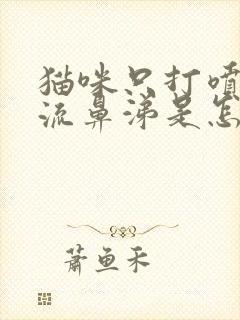 猫咪只打喷
流鼻涕是怎
萧鱼禾